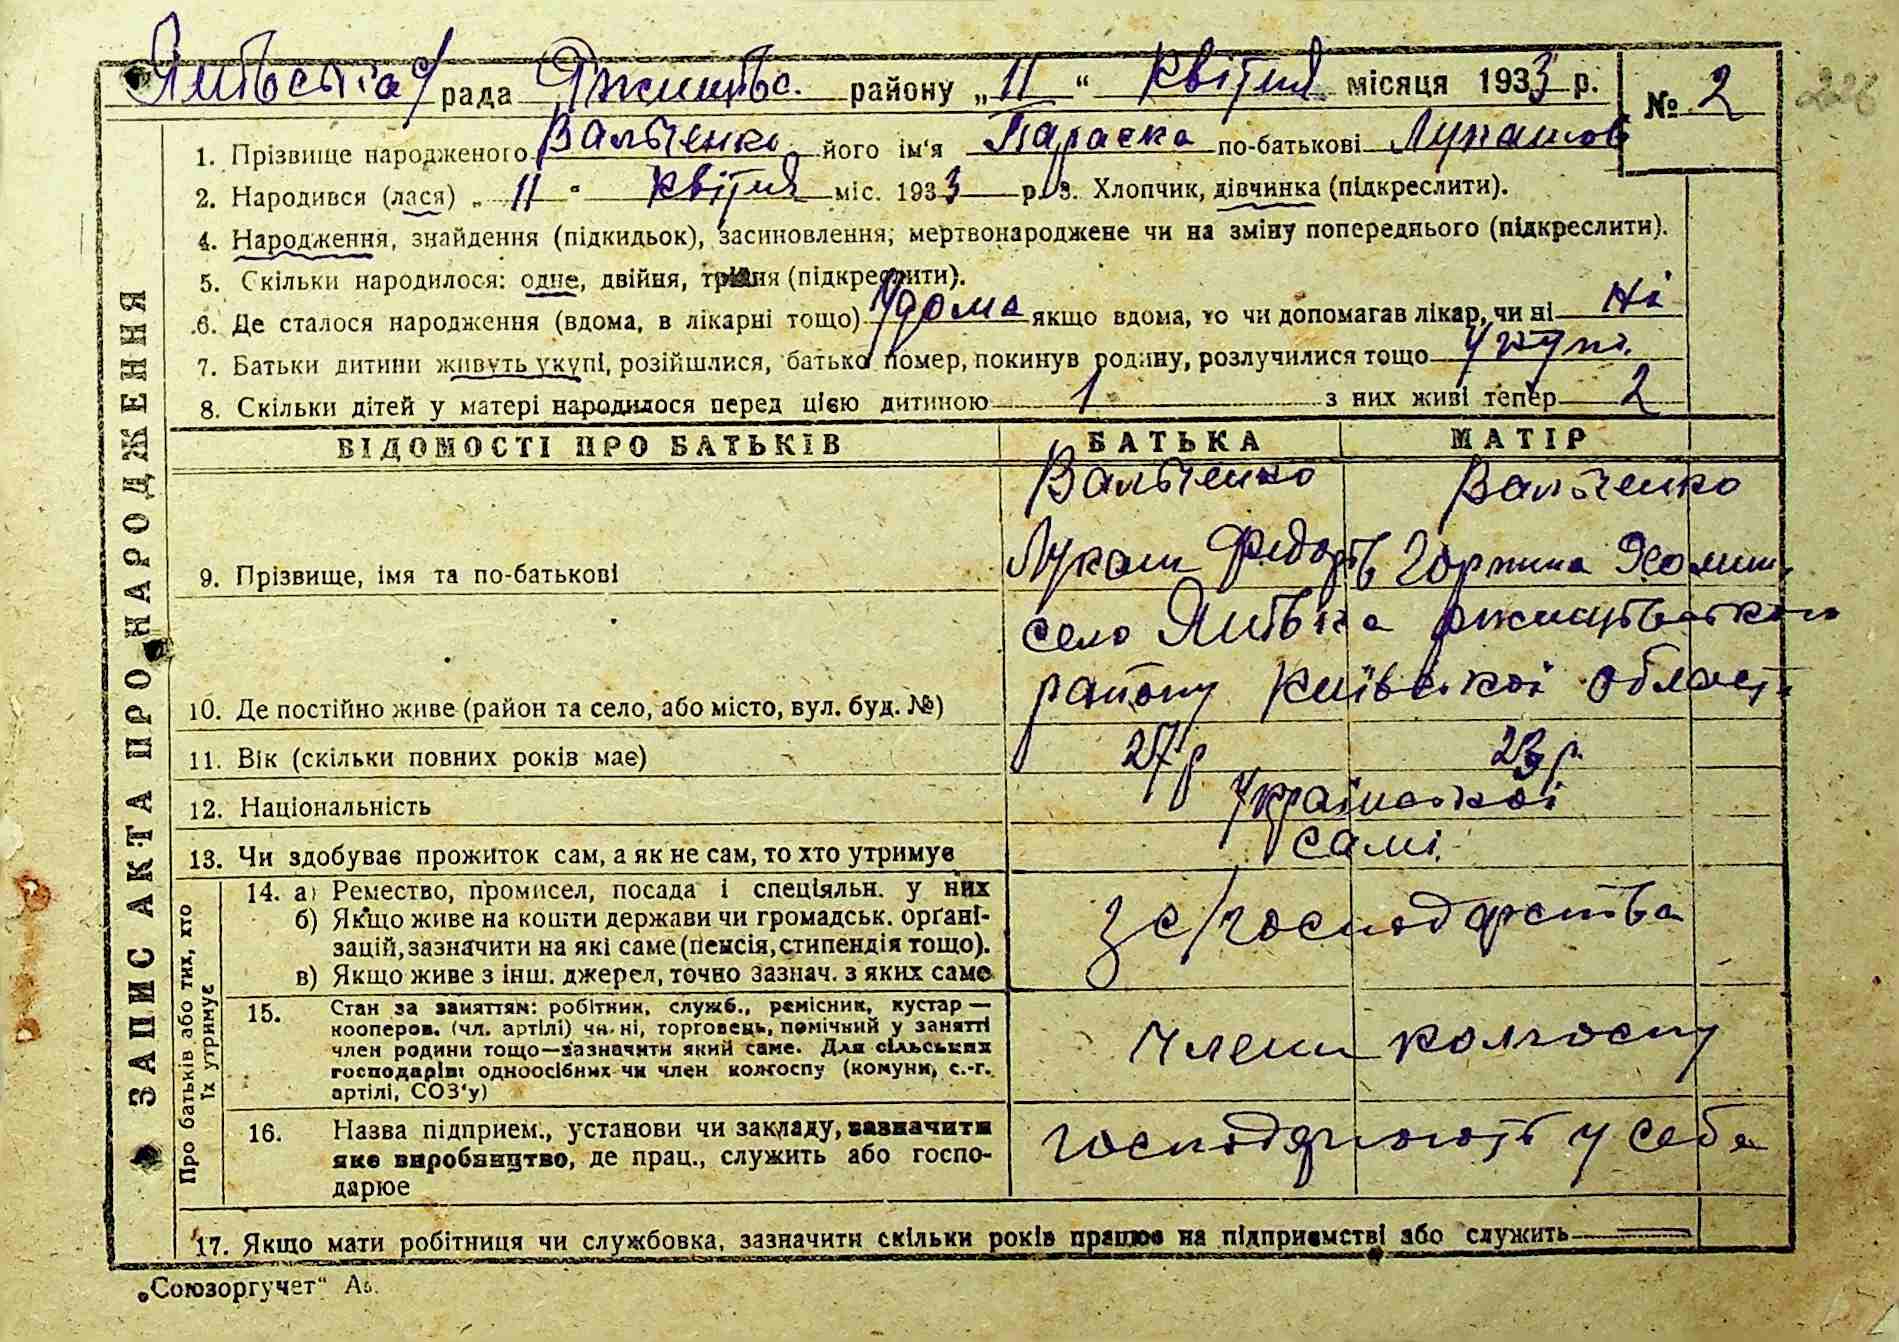 рада Ржищівс. району „11“ Квітня місяця 1933 р. № 2
226
ЗАПИС АКТА ПРО НАРОДЖЕННЯ
1. Прізвище народженого Вальченко його ім'я Параска по-батькові Лукашов
2. Народився (лася) „11“ квітня міс. 1933 р. 3. Хлопчик, дівчинка (підкреслити).
4. Народження, знайдення (підкидьок), засиновлення; мертвонароджене чи на зміну попереднього (підкреслити).
5. Скільки народилося: одне, двійня, трійня (підкреслити).
6. Де сталося народження (вдома, в лікарні тощо) Удома якщо вдома, то чи допомагав лікар, чи ні Ні
7. Батьки дитини живуть укупі, розійшлися, батько помер, покинув родину, розлучилися тощо укупі.
8. Скільки дітей у матері народилося перед цією дитиною 1 з них живі тепер 2
ВІДОМОСТІ ПРО БАТЬКІВ БАТЬКА МАТІР
Вальченко Вальченко
9. Прізвище, імя та по-батькові Лукаш Федорів Горпина Хомин.
село ржищівського
10. Де постійно живе (район та село, або місто, вул. буд. №) району Київської області
11. Вік (скільки повних років має) 27 р 23 р.
12. Національність Української
13. Чи здобуває прожиток сам, а як не сам, то хто утримує самі.
Про батьків або тих, хто їх утримує
14. а) Ремество, промисел, посада і спеціяльн. у них
б) Якщо живе на кошти держави чи громадськ. органі-
зацій, зазначити на які саме (пенсія, стипендія тощо).
в) Якщо живе з інш. джерел, точно зазнач. з яких саме
з с/господарства
15. Стан за заняттям: робітник, служб., ремісник, кустар —
кооперов. (чл. артілі) чи ні, торговець, помічний у занятті
член родини тощо—зазначити який саме. Для сільських
господарів: одноосібник чи член колгоспу (комуни, с.-г.
артілі, СОЗ'у)
Члени колгоспу
16. Назва підприєм., установи чи закладу, зазначити
яке виробництво, де прац., служить або госпо-
дарює
господарюють у себе
17. Якщо мати робітниця чи службовка, зазначити скільки років працює на підприємстві або служить
„Союзоргучет“